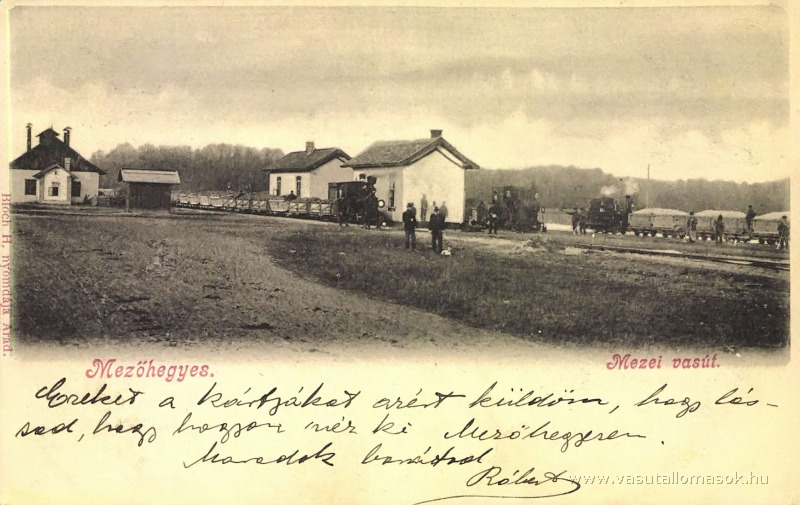 Bloch H. nyomdája Arad.
Mezőhegyes.
Mezei vasút.
Ezeket a kártyákat azért küldöm, hogy lás-
sad, hogy hogyan néz ki Mezőhegyesen.
Maradok barátod
Róbert
www.vasutallomasok.hu